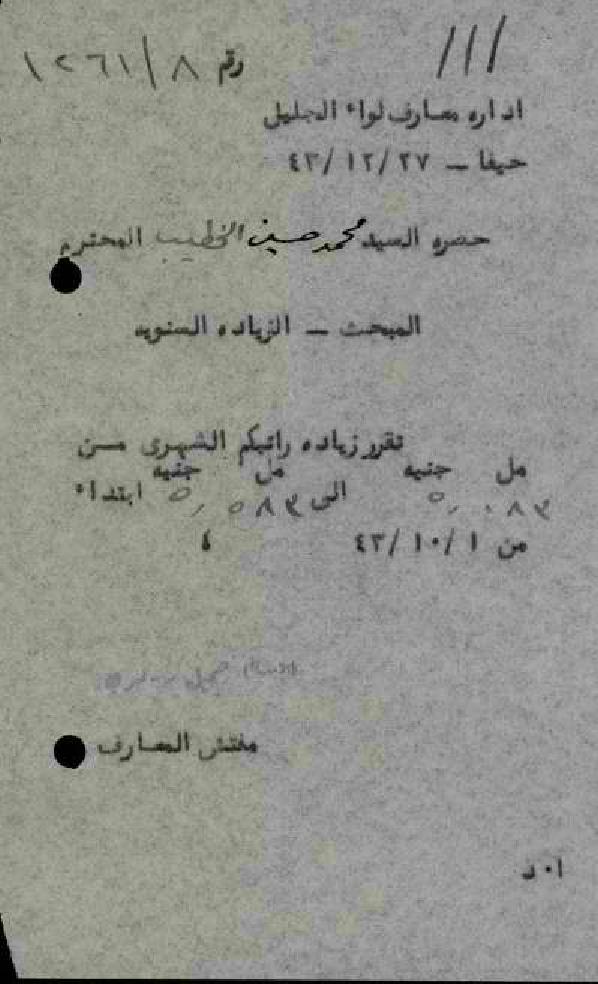 ///
رقم ٨/١٢٦١
اداره معارف لواء الجليل
حيفا – ٢٧ /١٢ /٤٣
حضره السيد محمد حسين الخطيب المحترم
المبحث – الزياده السنويه
تقرر زياده راتبكم الشهرى مسن
مل جنيه مل جنيه
٠٨٣ ٥, الى ٥٨٣ ٥, ابتداء
من ١ /١٠ /٤٣ ،
(الامضاء) جميل
مفتش المعارف
ا٠د